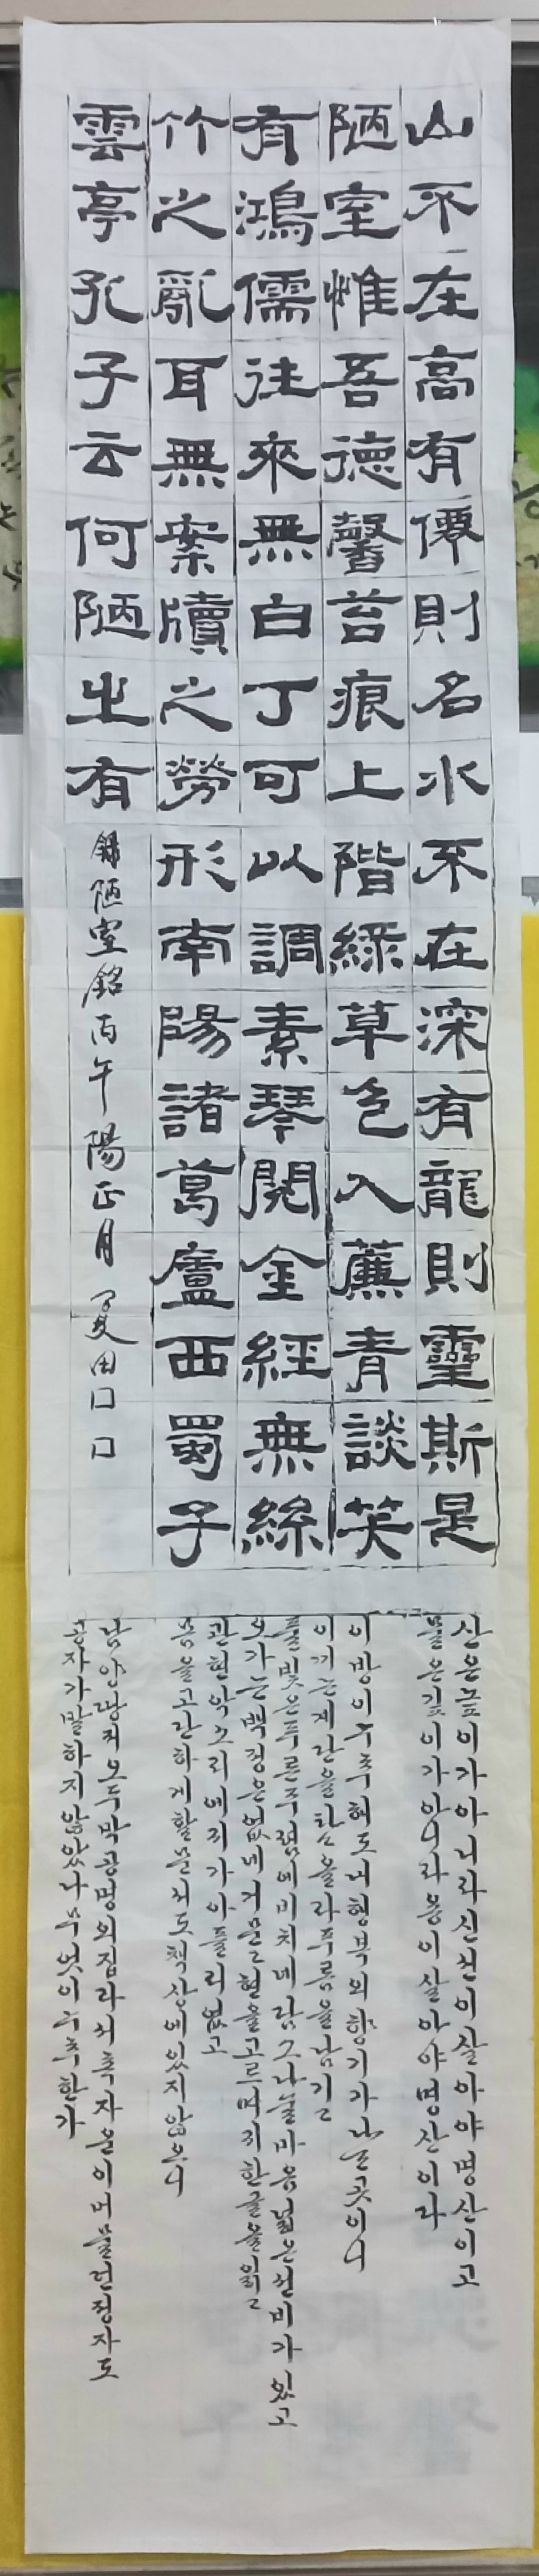 山不在高有僊則名水不在深有龍則靈斯是
陋室惟吾德馨苔痕上階綠草色入薕青談笑
有鴻儒往來無白丁可以調素琴閱金經無絲
竹之亂耳無案牘之勞形南陽諸葛廬西蜀子
雲亭孔子云何陋之有
錄陋室銘丙午陽正月 夏田口口
산은높이가아니라신선이살아야명산이고
물은깊이가아니라용이살아야명산이라
이방이누추해도내행복의향기가나는곳이니
이끼는계단을타오올라푸름을남기고
풀빛은푸른주렴에비치네담소나눌마음넓은선비가있고
오가는백정은없네거문고현을고르며귀한글을읽고
관현악소리에귀가아플리없고
몸을고단하게할문서도책상에있지않으니
남양땅의오두막공명의집라서촉자운이머물던정자도
공자가말하지않았나무엇이누추한가